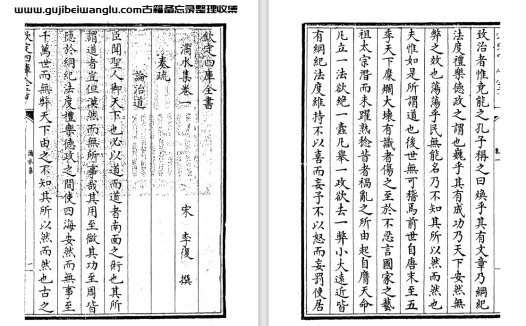 www.gujibeiwanglu.com古籍备忘录整理收集
欽定四庫全書
潏水集卷一
宋 李復 撰
奏疏
論治道
臣聞聖人御天下也必以道而道者南面之術也其所
謂道者豈但漠然而無所事哉其用至微其功至周皆
隱於綱紀法度禮樂德政之間使四海安然而無事至
千萬世而無弊天下由之不知其所以然而然也古之
欽定四庫全書
潏水集
致治者惟堯能之孔子稱之曰煥乎其有文章乃綱紀
法度禮樂德政之謂也巍乎其有成功乃天下安然無
弊之效也蕩蕩乎民無能名乃不知其所以然而然也
夫惟如是所謂道也後世無可稽焉前世自唐末至五
季天下糜爛大壞有識者傷之至於不忍言國家之藝
祖太宗潛而未躍熟稔昔者禍亂之所由起自膺天命
凡立一法欲絕一蠹凡舉一政欲去一弊小大遠近皆
有綱紀法度維持不以喜而妄予不以怒而妄罰使居